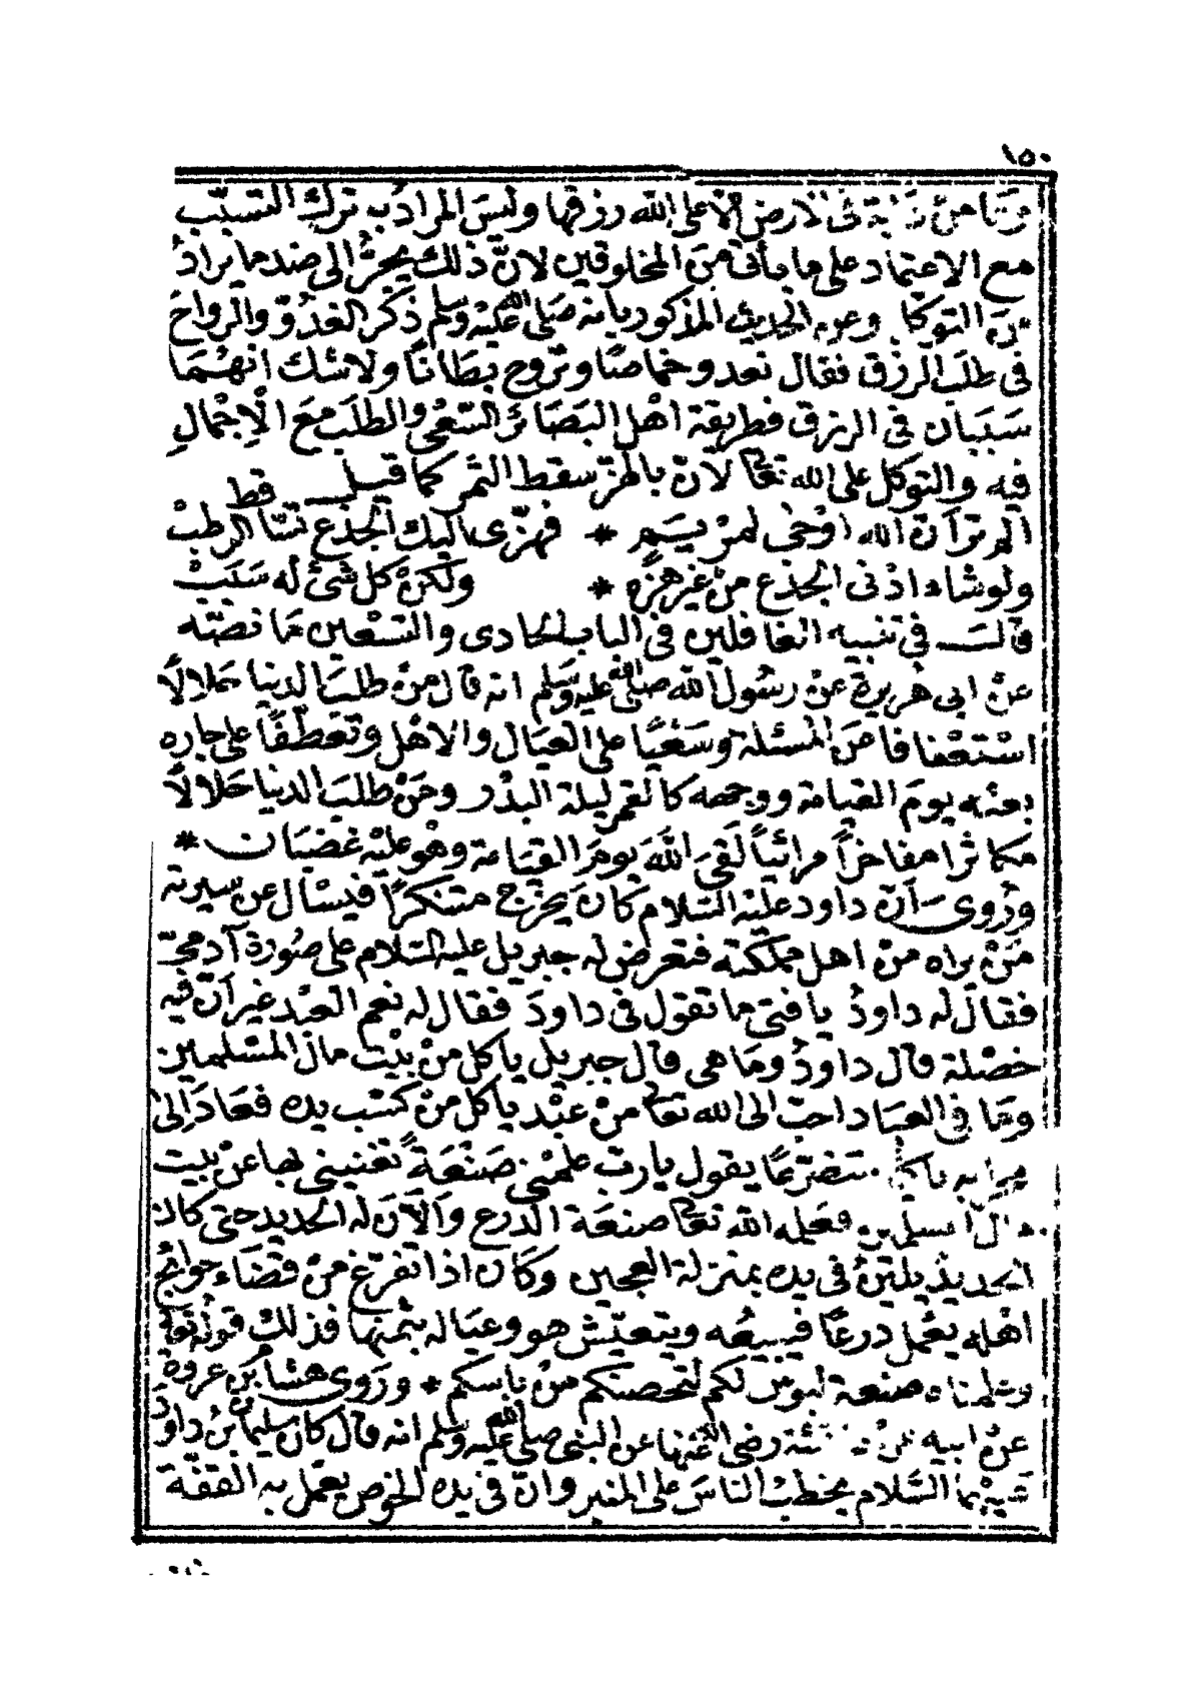 ١٥٠
وما من دابة فى الارض الا على الله رزقها وليس المراد به ترك التسبّب
مع الاعتماد على ما يأتى من المخلوقين لانّ ذلك يجرّ الى ضد ما يراد
من التوكل وعن الحديث المذكور بانه صلى الله عليه وسلم ذكر الغدوّ والرواح
فى طلب الرزق فقال تغدو خماصًا وتروح بطانًا ولا شك انهما
سببان فى الرزق فطريقة اهل البصائر السّعى والطلب مع الاجمال
فيه والتوكل على الله تعالى لانّ بالهزّ سقط الثمر كما قيل قط
الم تر انّ الله اوحى لمريم * فهزّى اليك الجذع تسّاقط الرطب
ولو شاء اذنى الجذع من غير هزّه * ولكن كل شئ له سبب
قالت فى تنبيه الغافلين فى الباب الحادى والتسعين ما نصّه
عن ابى هريرة عن رسول الله صلى الله عليه وسلم انه قال من طلب الدنيا حلالاً
استعفافا من المسئلة وسعيًا على العيال والاهل وتعطّفًا على جاره
بعثه يوم القيامة ووجهه كالقمر ليلة البدر ومن طلب الدنيا حلالاً
مكاثرا مفاخراً مرائياً لقى الله يوم القيامة وهو عليه غضبان *
وروى آنّ داود عليه السّلام كان يخرج متنكرًا فيسأل عن سيرته
من يراه من اهل مملكته فتعرض له جبريل عليه السّلام على صورة آدمىّ
فقال له داود يا فتى ما تقول فى داود فقال له نعم العبد غير آنّ فيه
خصلة قال داود وما هى قال جبريل ياكل من بيت مال المسلمين
وما فى العباد احبّ الى الله تعالى من عبد ياكل من كسب يده فعاد الى
محرابه باكيًا متضرّعًا يقول يا ربّ علّمنى صنعة تغنينى بها عن بيت
مال المسلمين فعلمه الله تعالى صنعة الدرع وآلآن له الحديد حتى كان
الحديد يلين فى يده بمنزلة العجين وكان اذا تفرّغ من قضاء حوائج
اهله يعمل درعًا فيبيعه ويتعيّش هو وعياله بثمنها فذلك قوله تعالى
وعلمناه صنعة لبوس لكم لتحصنكم من باسكم * وروى هشام بن عروة
عن ابيه عن عائشة رضى الله عنها عن النبى صلى الله عليه وسلم انه قال كان سليمان بن داود
عليهما السّلام يخطب الناس على المنبر وانّ فى يده الخوص يعمل به القفّة